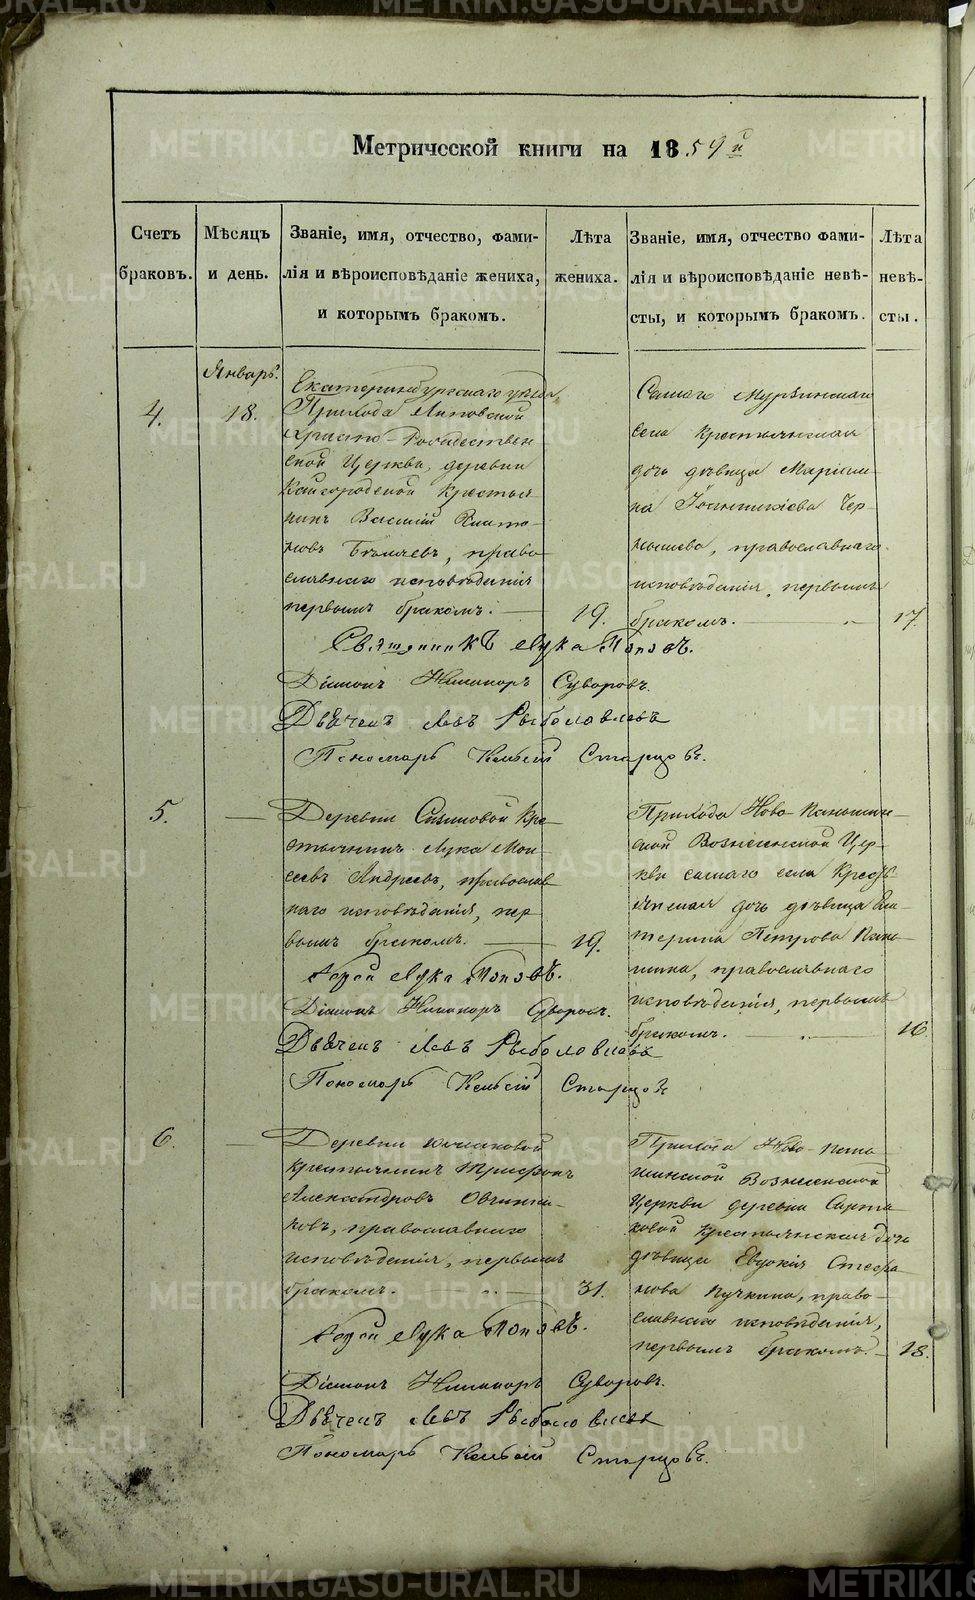 METRIKI.GASO-URAL.RU
Метрической книги на 1859й
Счетъ браковъ.
Мѣсяцъ и день.
Званіе, имя, отчество, фами-
лія и вѣроисповѣданіе жениха,
и которымъ бракомъ.
Лѣта жениха.
Званіе, имя, отчество фами-
лія и вѣроисповѣданіе невѣ-
сты, и которымъ бракомъ.
Лѣта невѣ-
сты.
Январь.
4.
18.
Екатеринбургскаго уѣзда,
Прихода Липовской
Христо-Рождествен
ской Церкви, деревни
Кайгородской Крестья
нинъ Василій
новъ, право
славнаго исповѣданія
первымъ бракомъ.
19.
Самаго Мурзинскаго
села Крестьянская
дочь дѣвица Маріам
на Іоанникіева Чер
нышева, православнаго
исповѣданія, первымъ
бракомъ.
17.
Священникъ Лука Поповъ.
Діаконъ Никаноръ Суворовъ.
Дьячекъ Левъ
Пономарь Старцовъ.
5.
Деревни Сизиковой Кре
стьянинъ Лука Мои
сеевъ Андреевъ, православ
наго исповѣданія, пер
вымъ бракомъ.
19.
Прихода Ново-
ской Вознесенской Цер
кви самаго села Кресть
янская дочь дѣвица Ека
терина Петрова Пань
шина, православнаго
исповѣданія, первымъ
бракомъ.
16.
Іерей Лука Поповъ.
Діаконъ Никаноръ Суворовъ.
Дьячекъ Левъ
Пономарь Старцовъ
6.
Деревни
крестьянинъ Трифонъ
Александровъ Овчинни
ковъ, православнаго
исповѣданія, первымъ
бракомъ.
31.
Прихода Ново-Пань
шинской Вознесенской
Церкви деревни
ковой крестьянская дочь
дѣвица Евдокія Стефа
нова Пучкина, право
славнаго исповѣданія,
первымъ бракомъ.
18.
Іерей Лука Поповъ.
Діаконъ Никаноръ Суворовъ.
Дьячекъ Левъ
Пономарь Старцовъ.
METRIKI.GASO-URAL.RU